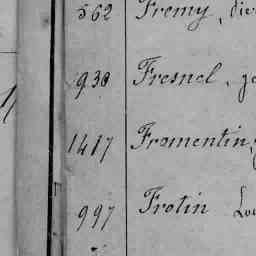 562 Fremy,
930 Fresnel,
1417 Fromentin,
997 Frotin